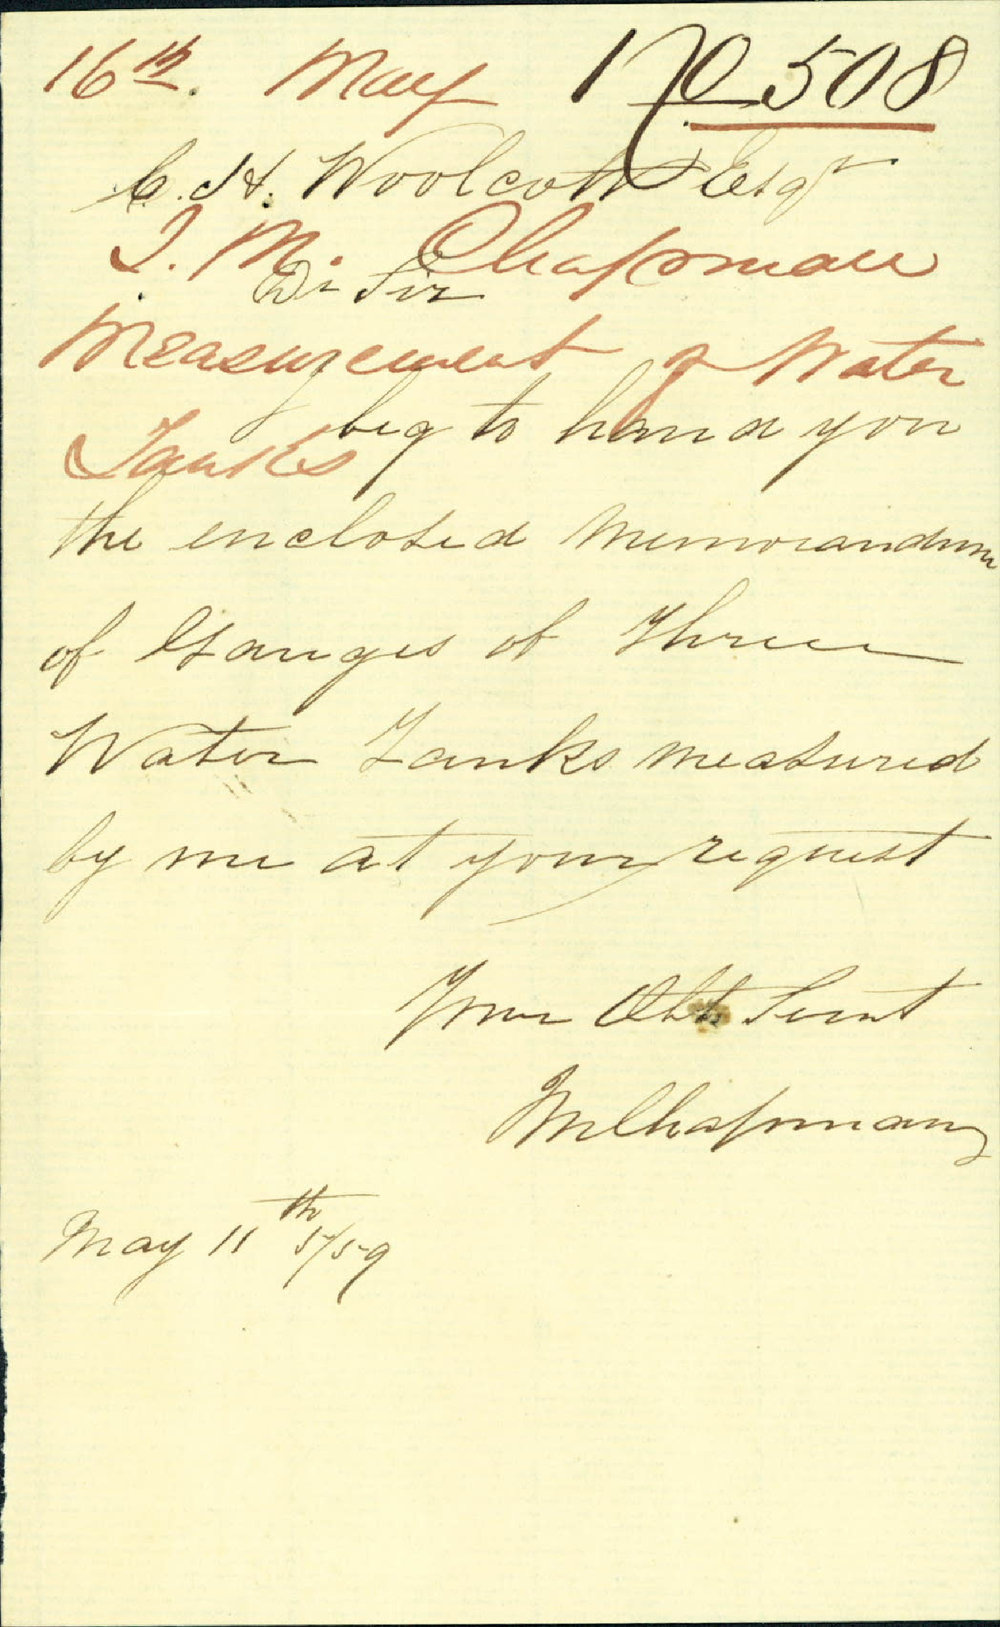 16th. May No 508
C. H. Woolcott Esqr
T. M. Chapman
Dr Sir
Measurement of Water
I beg to hand you
Tanks
the enclosed Memorandum
of Gauges of Three
Water Tanks measured
by me at your request
Your Obt Servt
Chapman
May 11th /59